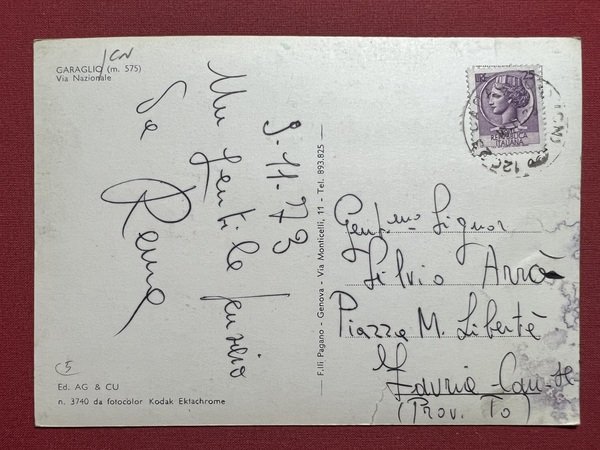 CN
GARAGLIO (m. 575)
Via Nazionale
9.11.73
Un gentile pensiero
da
Rema
5
Ed. AG & CU
n. 3740 da fotocolor Kodak Ektachrome
F.lli Pagano - Genova - Via Monticelli, 11 - Tel. 893.825 —
25
REPUBBLICA
ITALIANA
Gent.mo Signor
Silvio Arrò
Piazza M. Libertà
Favria
(Prov. To)